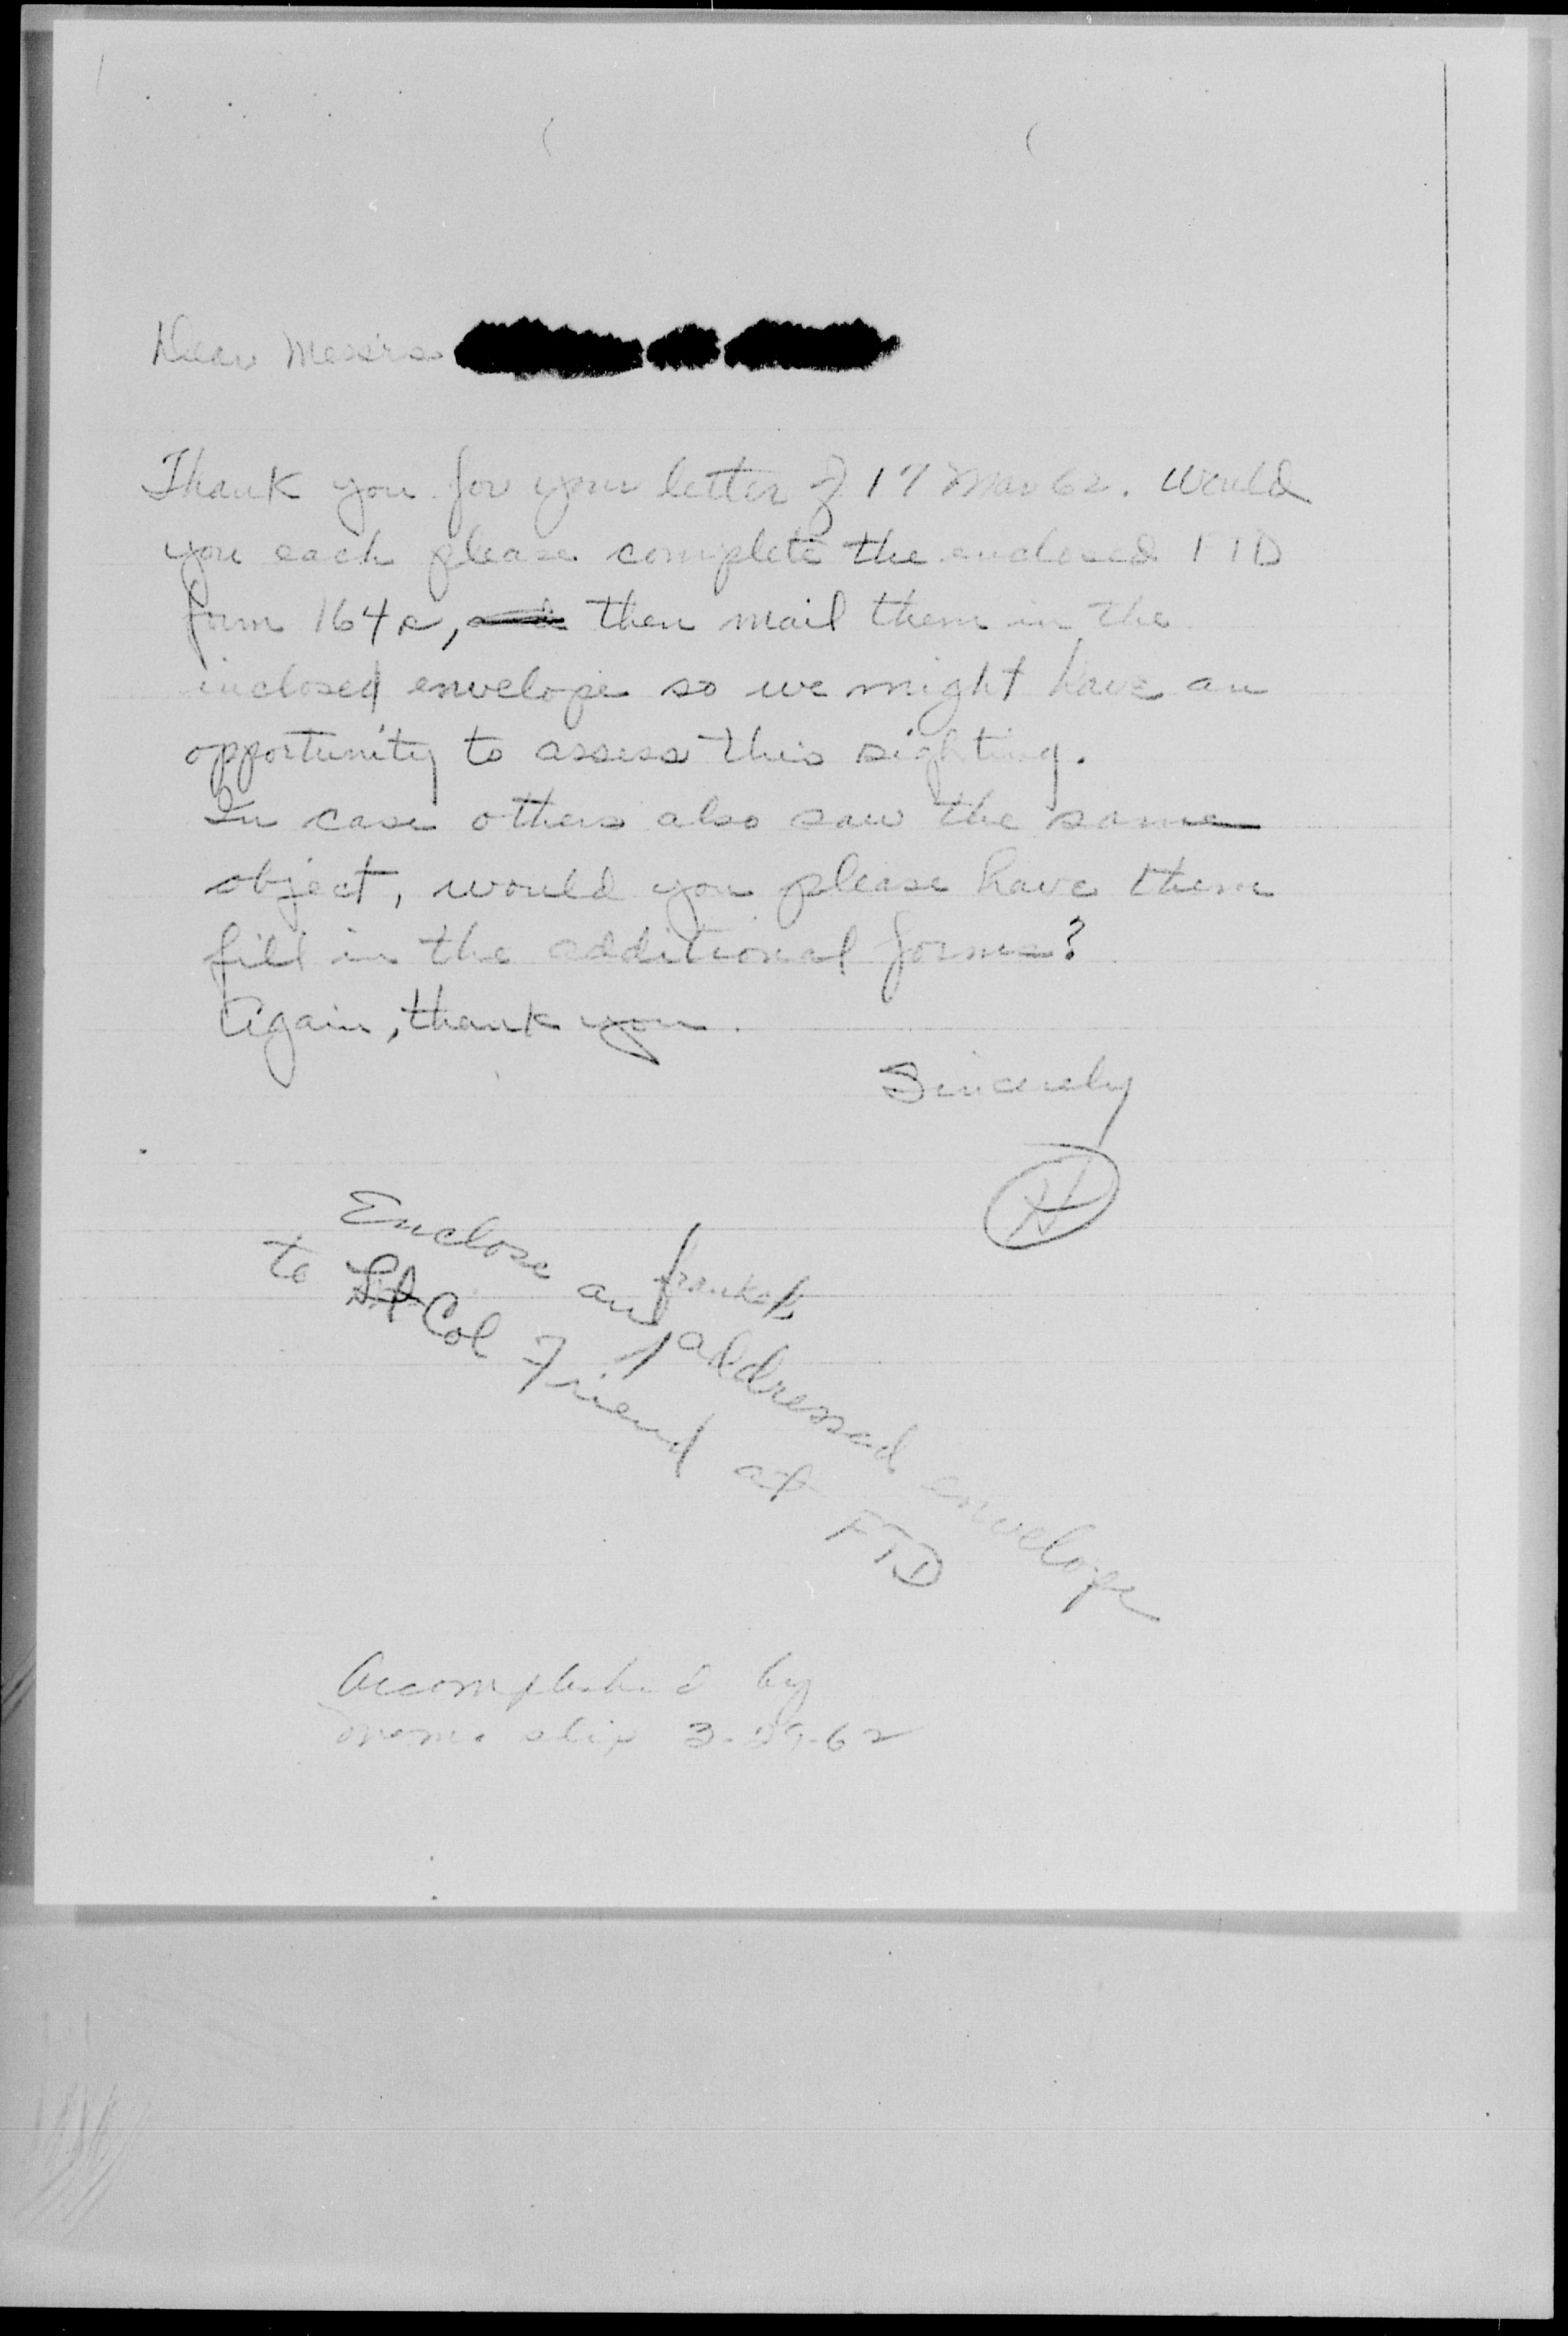 Dear Messrs
Thank you for your letter of 17 Mar 62. Would
you each please complete the enclosed FTD
form 164s, then mail them in the
inclosed envelope so we might have an
opportunity to assess this sighting.
In case others also saw the same
object, would you please have them
fill in the additional forms?
Again, thank you.
Sincerely
H
franked
Enclose an addressed envelope
to Lt Col Friend at FTD
Accomplished by
memo slip 3-29-62